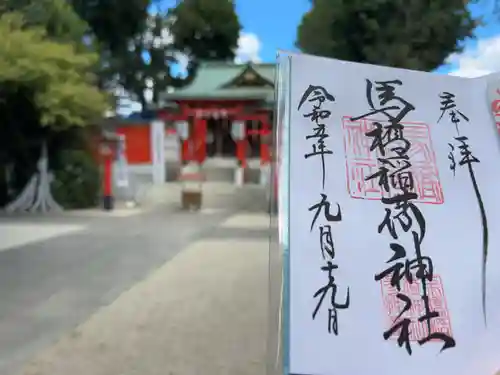 奉拝
馬橋稲荷神社
令和五年九月十九日